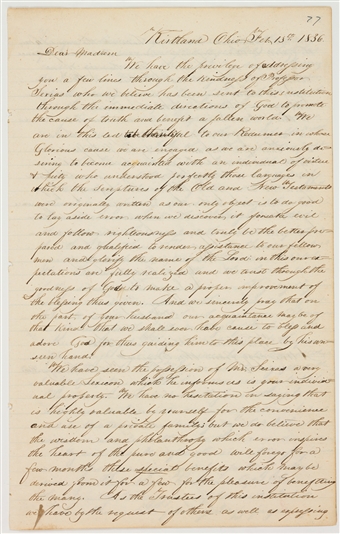 77
Kirtland Ohio Feb, 13th 1836
Dear Madam
We have the privilege of addressing
you a few lines through the kindness of Professor
Seixas who we believe has been sent to this institution
through the immediate directions of God to promote
the cause of truth and benefit a fallen world. We
are in this led to our Redeemer in whose
Glorious cause we are engaged, as we are anxiously de-
siring to become acquainted with an individual of virtue
& piety who understood perfectly those languages in
which the scriptures of the Old and New Testaments
were originally written as our only object is to do good
to lay aside error when we discover it forsake evil
and follow righteousness and truly be the better pre-
pared and qualified to render assistance to our fellow
men and glorify the name of the Lord in this our ex-
pectations are fully realized and we trust through the
goodness of God to make a proper improvement of
the blessing thus given. And we sincerely pray that on
the part of your husband our acquaintance may be of
that kind that we shall ever have cause to bless and
adore God for thus guiding him to this place by his un-
seen hand.
We have seen the possession of Mr. Seixas a very
valuable Lexicon which he informs us is your individ-
ual property. We have no hesitation in saying that
is highly valuable by yourself for the convenience
and use of a private family; but we do believe that
the wisdom and philanthropy which ever inspires
the heart of the pure and good will forego for a
few months these special benefits which may be
derived from it for a few for the pleasure of benefitting
the many. As the Trustees of this institution
we have by the request of others as well as expressing